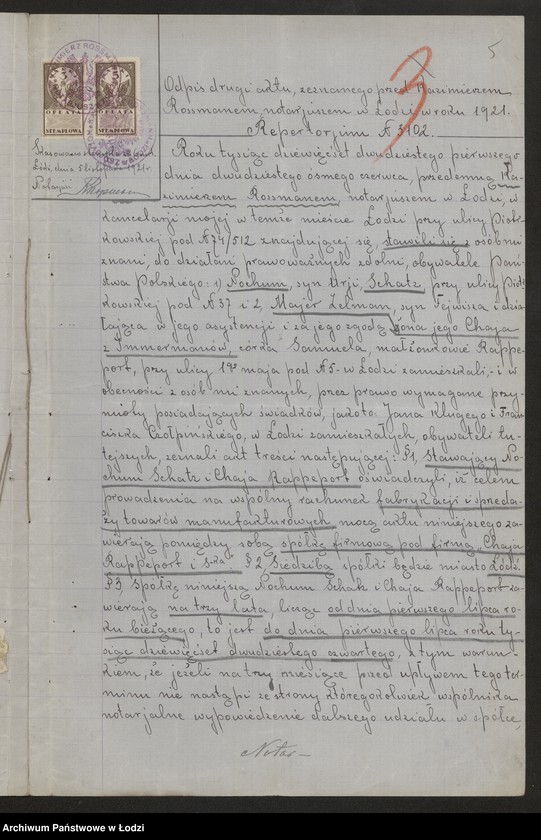 5
3
Odpis drugi aktu, zeznanego przed Kazimierzem
Rossmanem, notarjuszem w Łodzi, w roku 1921.
Repertorjum № 3102.
OPŁATA
STEMPLOWA
OPŁATA
STEMPLOWA
Łódź, dnia 5 1921 r.
Notarjusz
Roku tysiąc dziewięćset dwudziestego pierwszego
dnia dwudziestego ósmego czerwca, przedemną Ka-
zimierzem Rossmanem, notarjuszem w Łodzi, w
kancelarji mojej w temże mieście Łodzi przy ulicy Piotr-
kowskiej pod № 24/512 znajdującej się, stawili się z osobmi
znani, do działań prawoważnych zdolni, obywatele Pań-
stwa Polskiego: 1) Nochum, syn Urji, Schatz przy ulicy Piot-
kowskiej pod № 37 i 2, Majer Zelman, syn Fejwisza i dzia-
łająca w jego asystencji i za jego zgodą żona jego Chaja
z Immermanów, córka Samuela, małżonkowie Rappe-
port, przy ulicy 19º maja pod № 5 - w Łodzi zamieszkali, - i w
obecności z osób mi znanych, przez prawo wymagane przy-
mioty posiadających świadków, jakoto: Jana Klugego i Fran-
ciszka Czołpińskiego, w Łodzi zamieszkałych, obywateli tu-
tejszych, zeznali akt treści następującej: § 1, Stawający No-
chum Schatz i Chaja Rappeport oświadczyli, iż celem
prowadzenia na wspólny rachunek fabrykacji i sprzeda-
ży towarów manufakturowych mocą aktu niniejszego za-
wierają pomiędzy sobą spółkę firmową pod firmą „Chaja
Rappeport i S-ka" § 2, Siedzibą spółki będzie miasto Łódź.
§ 3, Spółkę niniejszą Nochum Schatz i Chaja Rappeport za-
wierają na trzy lata, licząc od dnia pierwszego lipca ro-
ku bieżącego, to jest do dnia pierwszego lipca roku ty-
siąc dziewięćset dwudziestego czwartego, z tym warun-
kiem, że jeżeli na trzy miesiące przed upływem tego ter-
minu nie nastąpi ze strony któregokolwiek wspólnika
notarjalne wypowiedzenie dalszego udziału w spółce,
Notar-
Archiwum Państwowe w Łodzi